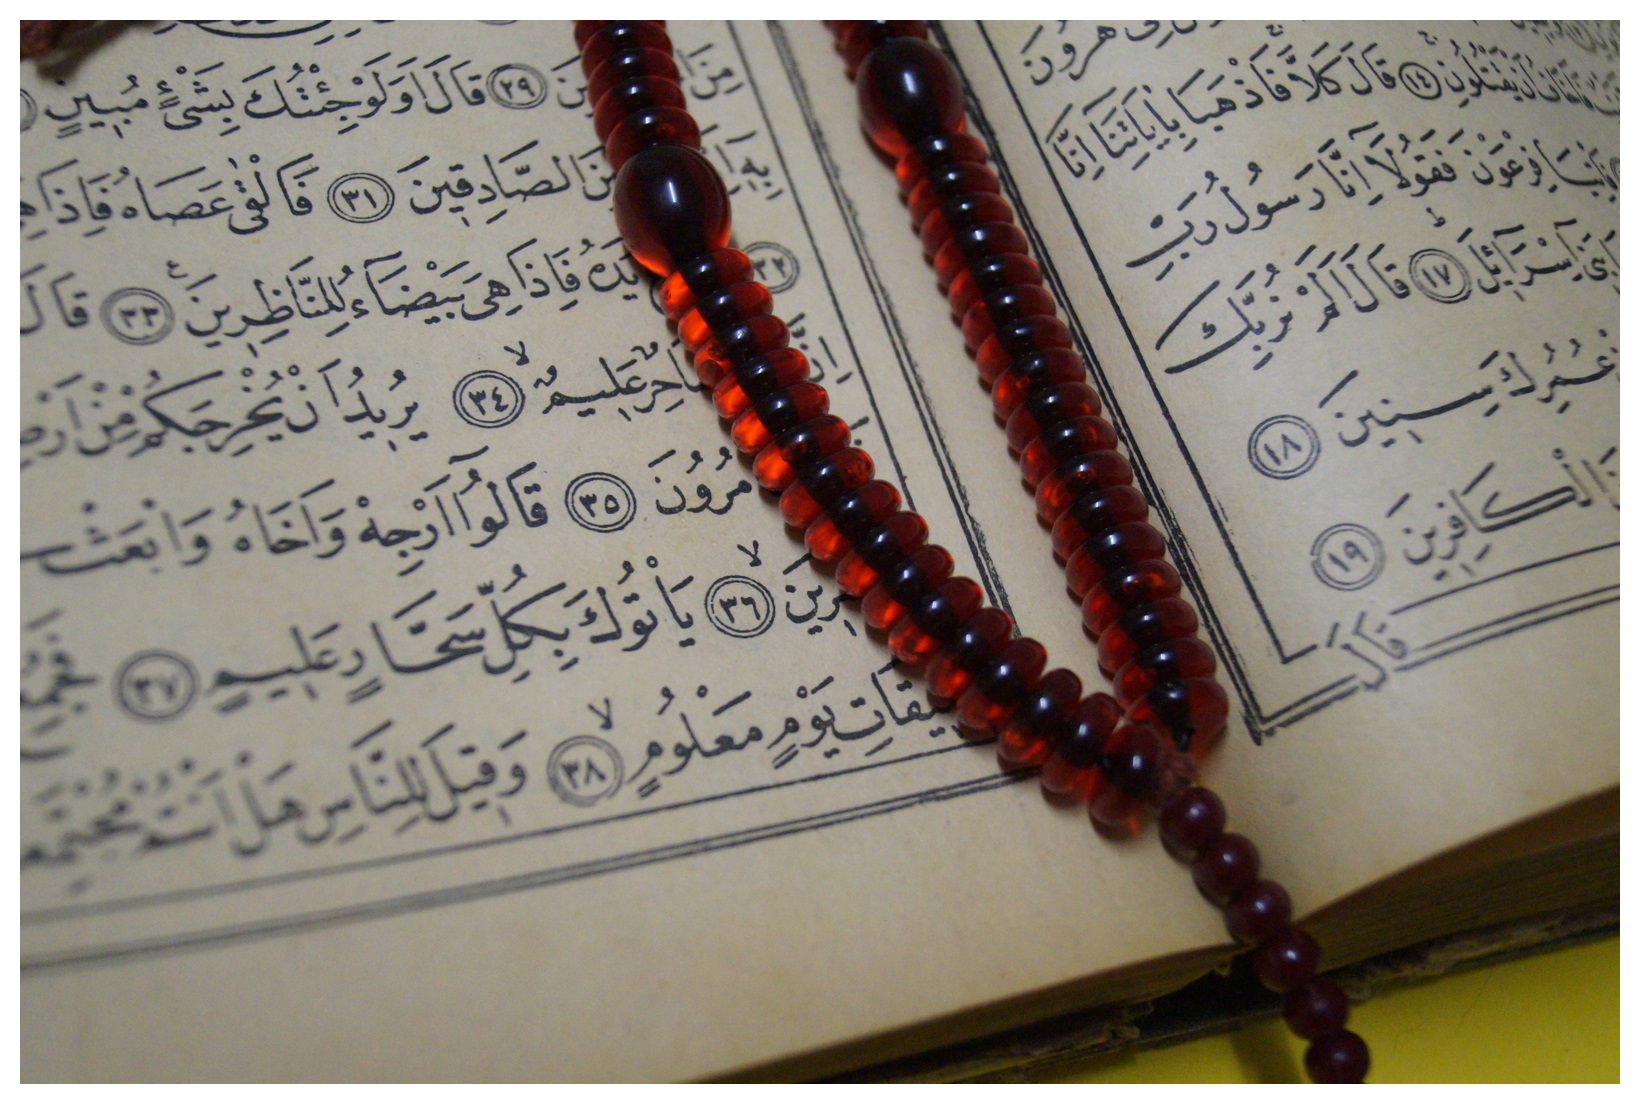 هٰرُونَ
اَنْ يَقْتُلُونِ ١٤ قَالَ كَلَّا فَاذْهَبَا بِاٰيَاتِنَٓا اِنَّا
فَأْتِيَا فِرْعَوْنَ فَقُولَٓا اِنَّا رَسُولُ رَبِّ
بَنِٓى اِسْرَٓائِلَ ١٧ قَالَ اَلَمْ نُرَبِّكَ
عُمُرِكَ سِنِينَ ١٨
الْكَافِرِينَ ١٩
قَالَ
مِنَ ٢٩ قَالَ اَوَلَوْ جِئْتُكَ بِشَىْءٍ مُبِينٍ
بِهِٓ الصَّادِقِينَ ٣١ فَاَلْقٰى عَصَاهُ فَاِذَا
٣٢ يَدَهُ فَاِذَا هِىَ بَيْضَٓاءُ لِلنَّاظِرِينَ ٣٣ قَالَ
عَلِيمٌ ٣٤ يُرِيدُ اَنْ يُخْرِجَكُمْ مِنْ
٣٥ قَالُٓوا اَرْجِهْ وَاَخَاهُ وَابْعَثْ
٣٦ يَأْتُوكَ بِكُلِّ سَحَّارٍ عَلِيمٍ ٣٧
يَوْمٍ مَعْلُومٍ ٣٨ وَقِيلَ لِلنَّاسِ هَلْ اَنْتُمْ